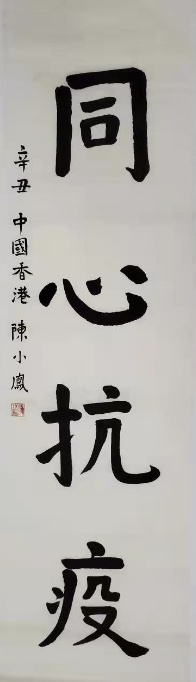 同心抗疫
辛丑 中國香港 陳小鳳